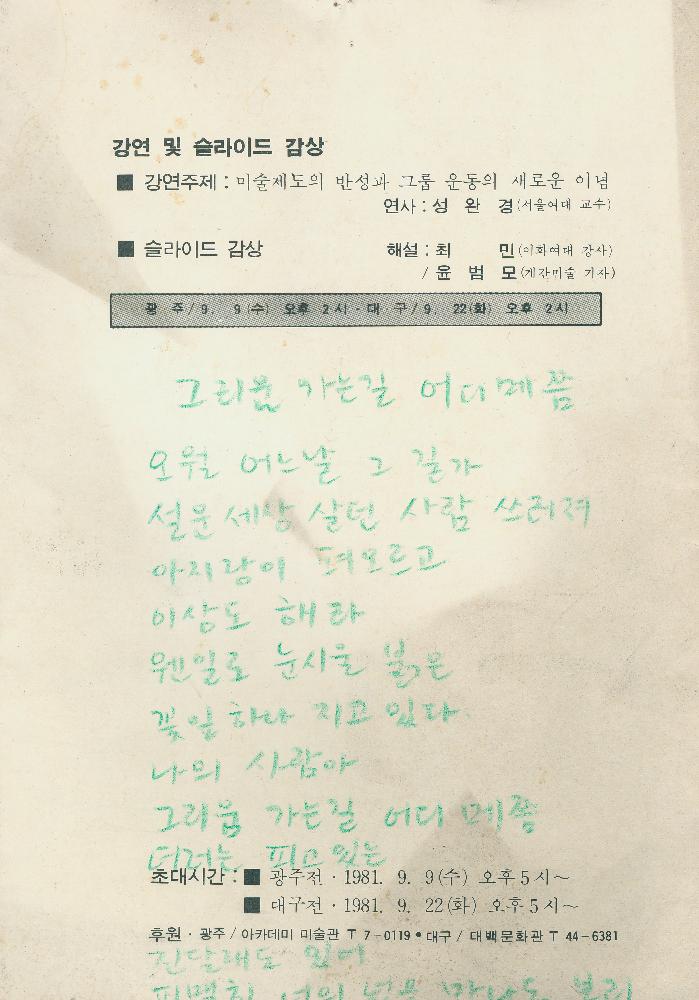 강연 및 슬라이드 감상
■ 강연주제 : 미술제도의 반성과 그룹 운동의 새로운 이념
연사 : 성 완 경(서울여대 교수)
■ 슬라이드 감상 해설 : 최 민(이화여대 강사)
/ 윤 범 모(계간미술 기자)
광 주 / 9. 9 (수) 오후 2시 · 대 구 / 9. 22(화) 오후 2시
그리움 가는길 어디메쯤
오월 어느날 그 길가
설운세상 살던 사람 쓰러져
아지랑이 펴오르고
이상도 해라
웬일로 눈시울 붉은
꽃잎하나 지고 있다.
나의 사람아
그리움 가는길 어디 메쯤
피고 있는
초대시간 : ■ 광주전 · 1981. 9. 9(수) 오후 5시~
■ 대구전 · 1981. 9. 22(화) 오후 5시~
후원 · 광주 / 아카데미 미술관 T 7-0119 • 대구 / 대백문화관 T 44-6381
진달래도 있어
너의